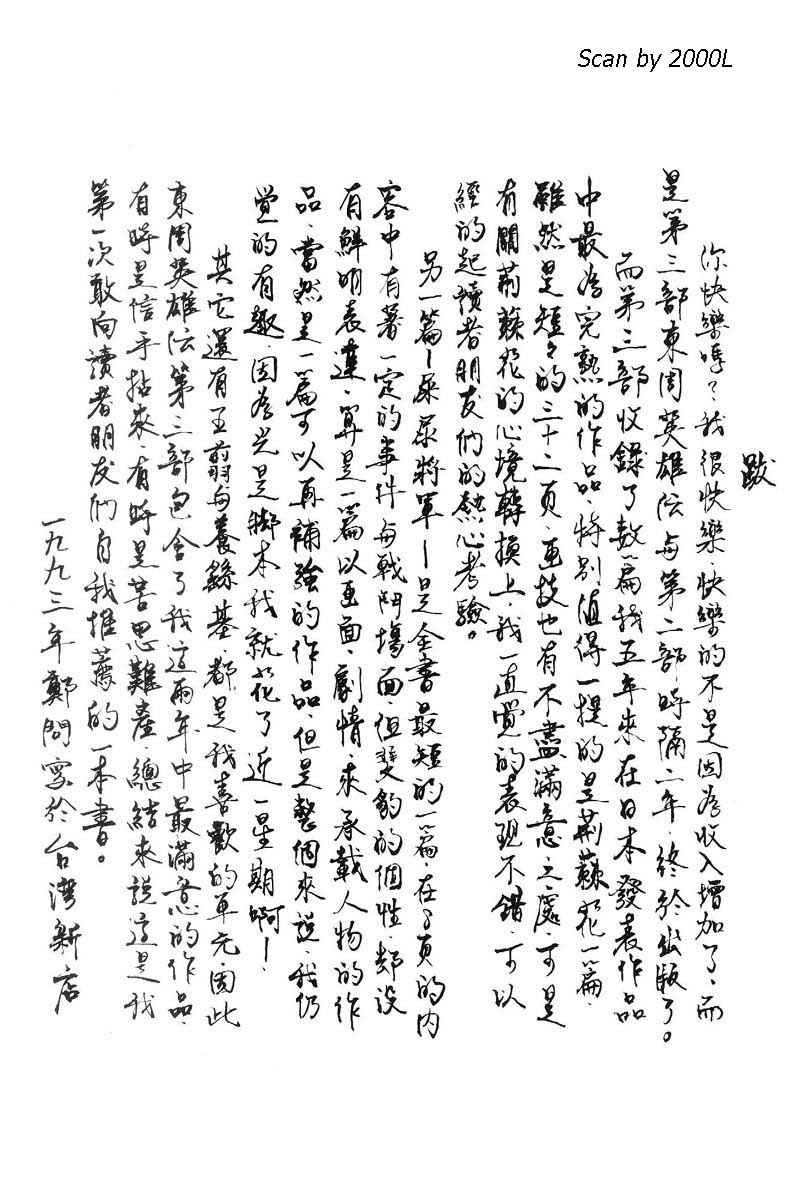 Scan by 2000L
跋
你快樂嗎？我很快樂，快樂的不是因為收入增加了，而
是第三部東周英雄伝与第二部時隔二年，終於出版了。
而第三部收錄了數篇我五年來在日本發表作品
中最為完熟的作品，特別值得一提的是荊蘇花一篇，
雖然是短々的三十二頁，画技也有不盡滿意之處，可是
有關荊蘇花的心境轉換上，我一直覺的表現不錯，可以
經的起讀者朋友們的熱心考驗。
另一篇—屎尿將軍—是全書最短的一篇，在8頁的內
容中有著一定的事件与戰鬥場面，但斐豹的個性却沒
有鮮明表達，算是一篇以画面、劇情，來承載人物的作
品，當然是一篇可以再補強的作品，但是整個來說，我仍
覺的有趣，因為光是脚本我就花了近一星期啊—，
其它還有王翦与養繇基，都是我喜歡的單元，因此
東周英雄伝第三部包含了我這兩年中最滿意的作品，
有時是信手拈來，有時是苦思難產，總結來說這是我
第一次敢向讀者朋友們自我推薦的一本書。
一九九三年鄭問寫於台灣新店